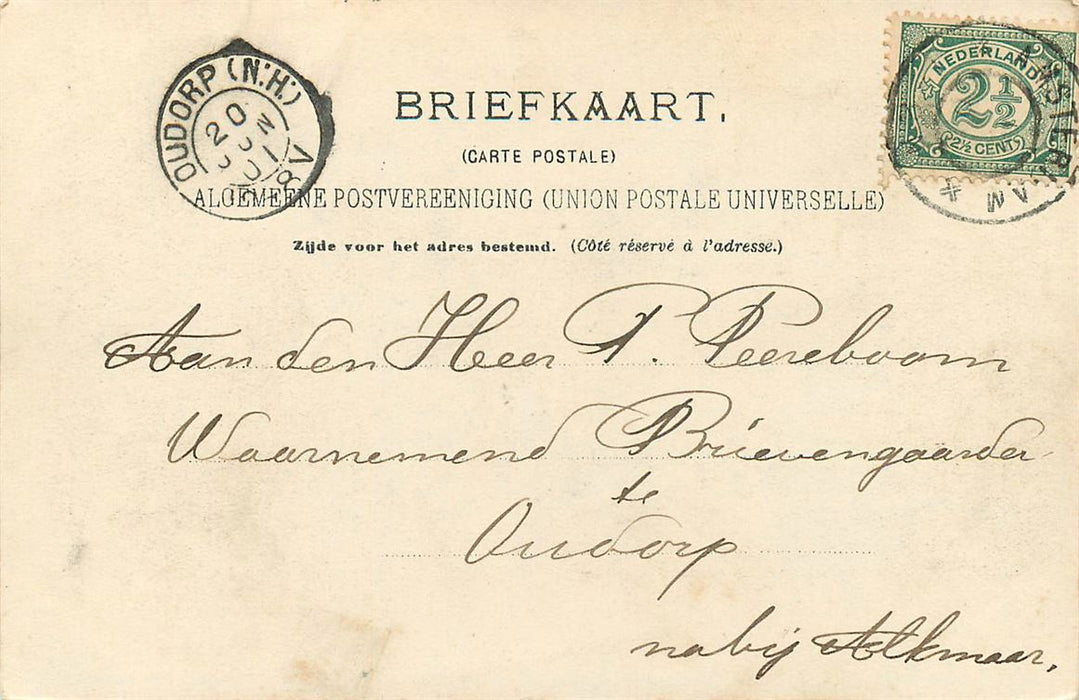 BRIEFKAART.
(CARTE POSTALE)
ALGEMEENE POSTVEREENIGING (UNION POSTALE UNIVERSELLE)
Zijde voor het adres bestemd. (Côté réservé à l'adresse.)
OUDORP (N:H:)
20
8V
NEDERLAND
2½
(2½ CENT)
AMSTERDAM
Aan den Heer P. Peereboom
Waarnemend Brievengaarder
te
Oudorp
nabij Alkmaar,